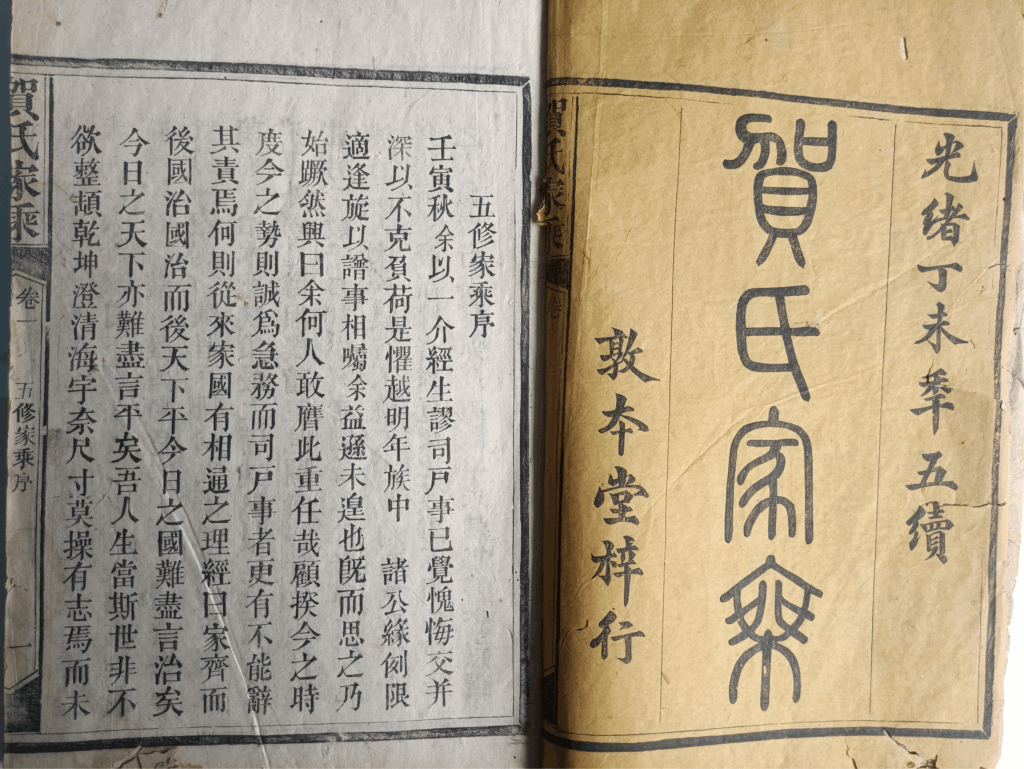 光緒丁未年五續
賀氏家乘
敦本堂梓行
五修家乘序
壬寅秋余以一介經生謬司戶事已覺愧悔交并
深以不克負荷是懼越明年族中 諸公緣例限
適逢旋以譜事相囑余益遜未遑也旣而思之乃
始蹶然興曰余何人敢膺此重任哉顧揆今之時
度今之勢則誠爲急務而司戶事者更有不能辭
其責焉何則從來家國有相通之理經曰家齊而
後國治國治而後天下平今日之國難盡言治矣
今日之天下亦難盡言平矣吾人生當斯世非不
欲整頓乾坤澄清海宇奈尺寸莫操有志焉而未
賀氏家乘
卷一
五修家乘序
一
賀氏家乘
卷